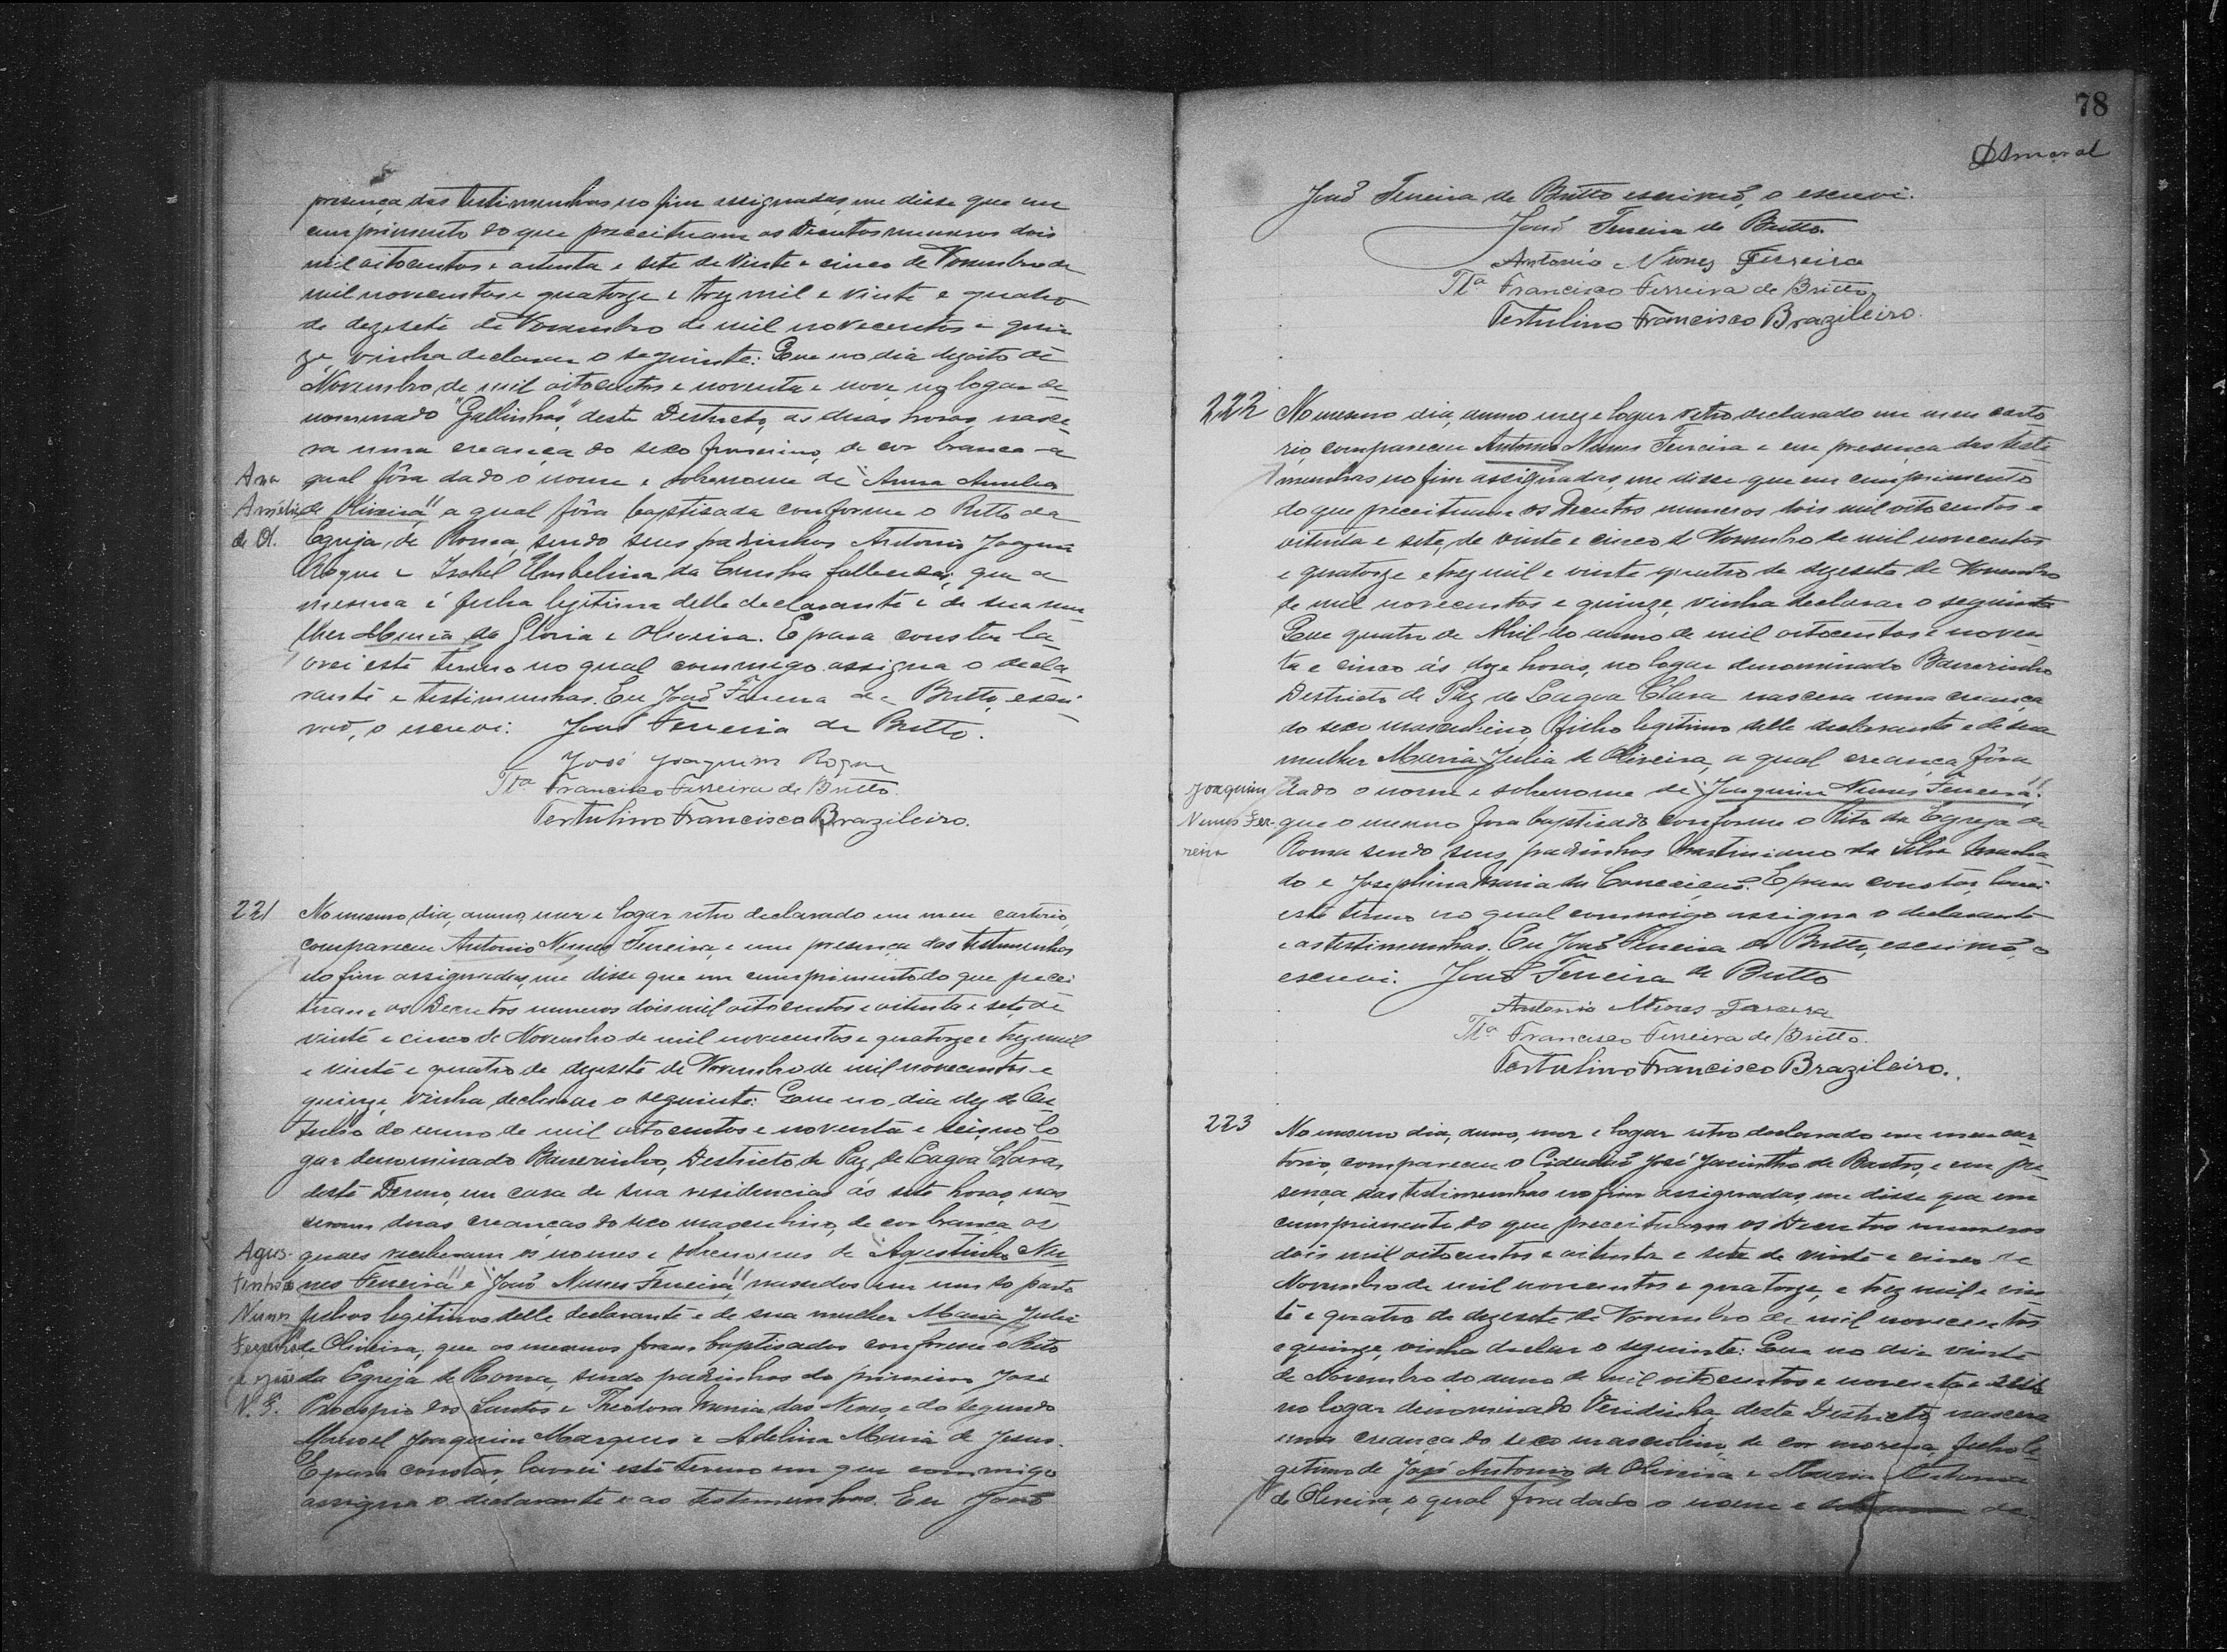 presença das testimunhas no fim assignadas, me disse que em
cumprimento do que preceituam os Decretos numeros dois
mil oitocentos e oitenta e sete de vinte e cinco de Novembro de
mil novecentos e quatorze e trez mil e vinte e quatro
de dezesete de Novembro de mil novecentos e quin
ze, vinha declarar o seguinte: Que no dia dezoito de
Novembro de mil oitocentos e noventa e nove, no logar de
nominado "Gallinhas", deste Destricto, as duas horas, nasce-
ra uma creança do sexo feminino, de cor branca a
Ana qual fôra dado o nome e sobrenome de "Anna Amelia
Amélia de Oliveira" a qual fôra baptisada conforme o Ritto da
de Ol. Egreja de Roma, sendo seus padrinhos Antonio Joaquim
Roque e Isabel Umbelina da Cunha fallecida; que a
mesma é filha legitima delle declarante e de sua mu
lher Maria da Gloria e Oliveira. E para constar la-
vrei este termo no qual commigo assigna o decla-
rante e testimunhas. Eu João Ferreira de Britto, escri-
vão, o escrevi. João Ferreira de Britto.
José Joaquim Roque
Tta Francisco Ferreira de Britto.
Tertulino Francisco Brazileiro.
221 No mesmo dia, anno, mez e logar retro declarado em meu cartorio,
compareceu Antonio Nunes Ferreira, e em presença das testimunhas
no fim assignadas, me disse que em cumprimento do que precei
tuam os Decretos numeros dois mil oitocentos e oitenta e sete de
vinte e cinco de Novembro de mil novecentos e quatorze e trez mil
e vinte e quatro de dezesete de Novembro de mil novecentos e
quinze, vinha declarar o seguinte: Que no dia dez de Ou
tubro do anno de mil oitocentos e noventa e seis, no lo
gar denominado Barreirinho, Destricto de Paz de Lagoa Clara,
deste Termo, em casa de sua residencia ás sete horas, nas
ceram duas creanças do sexo masculino, de cor branca, os
Agos- quaes receberam os nomes e sobrenomes de "Agostinho Nu-
tinho nes Ferreira" e "João Nunes Ferreira", nascidos em um só parto
Nunes filhos legitimos delle declarante e de sua mulher Maria Julia
Ferreira de Oliveira; que os mesmos foram baptisados conforme o Rito
e João da Egreja de Roma, sendo padrinhos do primeiro José
N. F. Procopio dos Santos e Theodora Maria das Neves, e do segundo
Manoel Joaquim Marques e Adelina Maria de Jesus.
E para constar, lavrei este termo em que commigo
assigna o declarante e as testimunhas. Eu João
78
Amaral
João Ferreira de Britto escrivão, o escrevi.
João Ferreira de Britto.
Antonio Nunes Ferreira
Tta Francisco Ferreira de Britto.
Tertulino Francisco Brazileiro.
222 No mesmo dia, anno, mez e logar retro declarado em meu carto
rio, compareceu Antonio Nunes Ferreira e em presença das teste
munhas no fim assignadas, me disse que em cumprimento
do que preceituam os Decretos numeros dois mil oitocentos e
oitenta e sete, de vinte e cinco de Novembro de mil novecentos
e quatorze e trez mil e vinte quatro de dezesete de Novembro
de mil novecentos e quinze, vinha declarar o seguinte
Que quatro de Abril do anno de mil oitocentos e noven
ta e cinco ás doze horas, no logar denominado Barreirinho
Destricto de Paz de Lagoa Clara nascera uma creança
do sexo masculino, filho legitimo delle declarante e de sua
mulher Maria Julia de Oliveira, a qual creança fôra
Joaquim dado o nome e sobrenome de "Joaquim Nunes Ferreira";
Nunes Fer- que o mesmo fora baptisado conforme o Rito da Egreja de
reira Roma sendo seus padrinhos Martiniano da Silva Macha
do e Josephina Maria da Conceição. E para constar, lavrei
este termo no qual commigo assigna o declarante
e as testimunhas. Eu João Ferreira de Britto, escrivão, o
escrevi. João Ferreira de Britto
Antonio Nunes Fareira
Tta Francisco Ferreira de Britto.
Tertulino Francisco Brazileiro.
223 No mesmo dia, anno, mez e logar retro declarado em meu car
torio, compareceu o Cidadão José Jacintho de Bastos, e em pre
sença das testimunhas no fim assignadas, me disse que em
cumprimento do que preceituam os Decretos numeros
dois mil oitocentos e oitenta e sete de vinte e cinco de
Novembro de mil novecentos e quatorze, e trez mil e vin
te e quatro de dezesete de Novembro de mil novecentos
e quinze, vinha declarar o seguinte: Que no dia vinte
de Novembro do anno de mil oitocentos e noventa e sete
no logar denominado Veridinha, deste Destricto, nascera
uma creança do sexo masculino, de cor morena, filho le
gitimo de José Antonio de Oliveira e Maria Antonia
de Oliveira, o qual fora dado o nome e sobrenome de